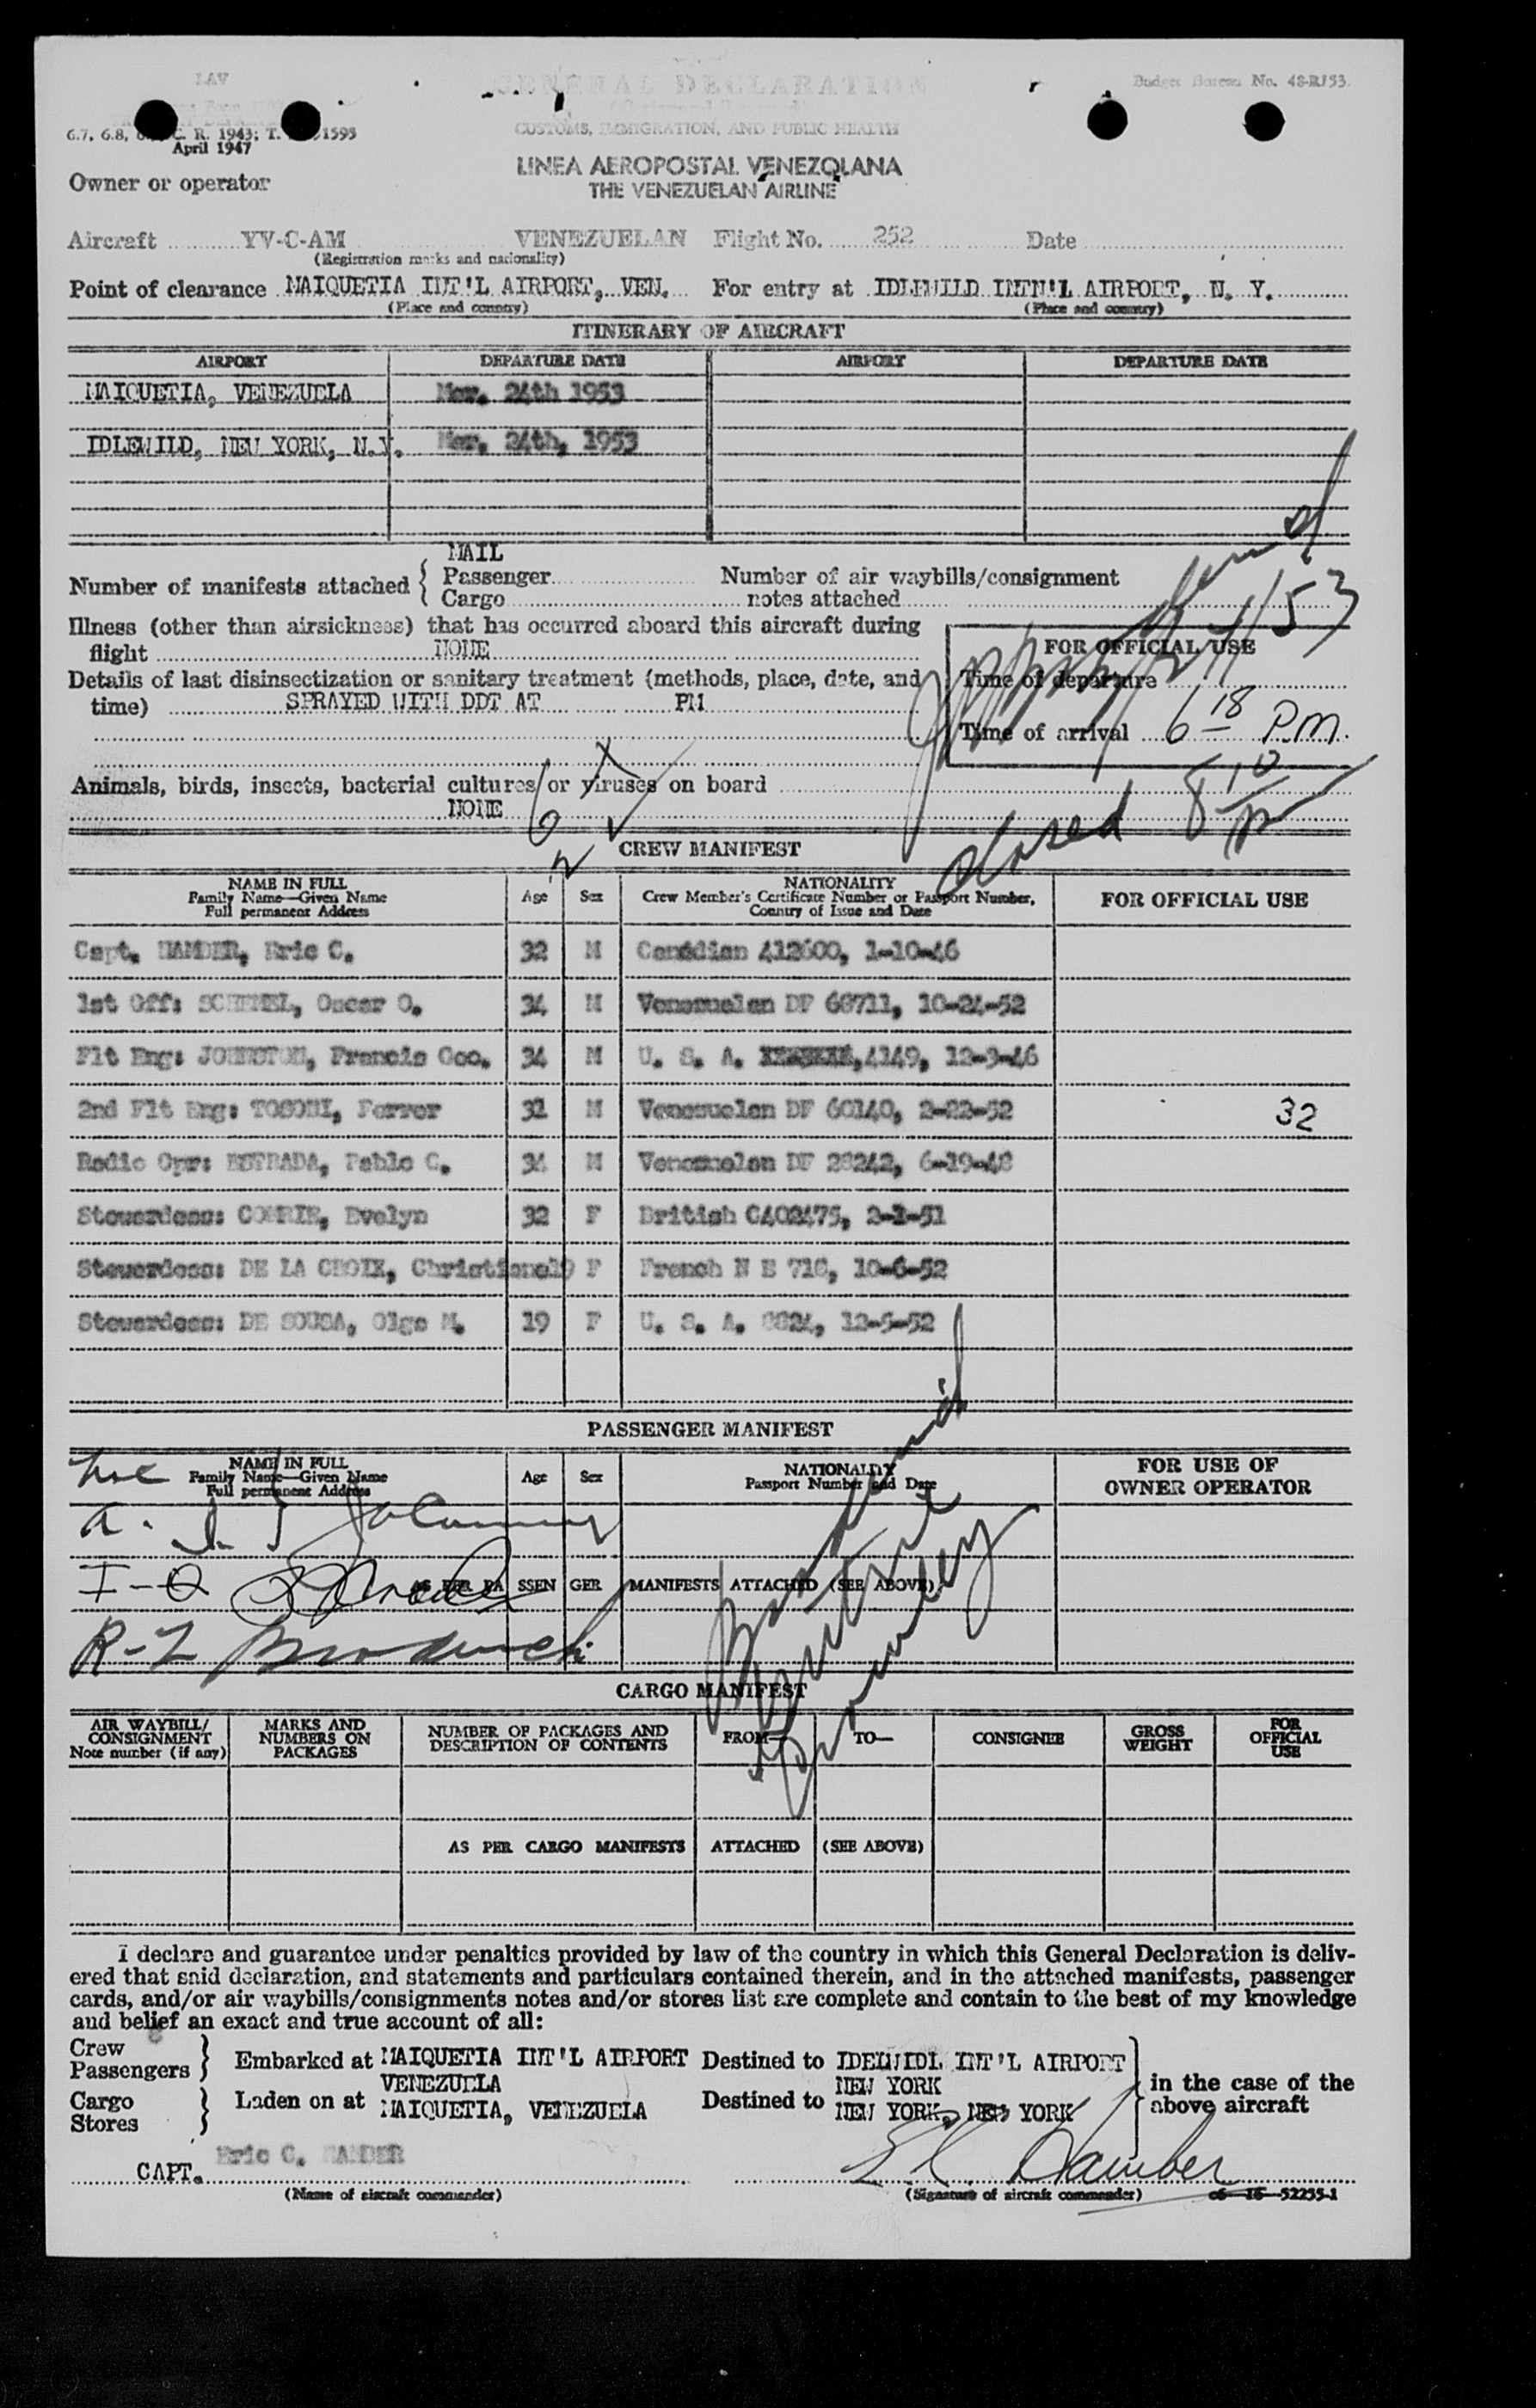 LAV
GENERAL DECLARATION
Budget Bureau No. 48-R153.
6.7, 6.8, C. R. 1943; T. 1595
CUSTOMS, IMMIGRATION, AND PUBLIC HEALTH
April 1947
LINEA AEROPOSTAL VENEZOLANA
Owner or operator
THE VENEZUELAN AIRLINE
Aircraft YV-C-AM VENEZUELAN Flight No. 252 Date
(Registration marks and nationality)
Point of clearance MAIQUETIA INT'L AIRPORT, VEN. For entry at IDLEWILD INTN'L AIRPORT, N. Y.
(Place and country) (Place and country)
ITINERARY OF AIRCRAFT
AIRPORT DEPARTURE DATE AIRPORT DEPARTURE DATE
MAIQUETIA, VENEZUELA Mar. 24th 1953
IDLEWILD, NEW YORK, N.Y. Mar. 24th, 1953
MAIL
Number of manifests attached { Passenger Number of air waybills/consignment
Cargo notes attached
Illness (other than airsickness) that has occurred aboard this aircraft during
flight NONE
FOR OFFICIAL USE
Details of last disinsectization or sanitary treatment (methods, place, date, and
Time of departure
time) SPRAYED WITH DDT AT PM
Time of arrival 6 18 PM.
Animals, birds, insects, bacterial cultures or viruses on board
NONE
closed 8 10
CREW MANIFEST
NAME IN FULL
Family Name—Given Name
Full permanent Address
Age Sex
NATIONALITY
Crew Member's Certificate Number or Passport Number,
Country of Issue and Date
FOR OFFICIAL USE
Capt. HAMBER, Eric C. 32 M Canadian 412600, 1-10-46
1st Off: Oscar O. 34 M Venezuelan DF 68711, 10-24-52
Flt Eng: JOHNSTON, Francis Geo. 34 M U. S. A. 4149, 12-9-46
2nd Flt Eng: TOSONI, Ferver M Venezuelan DF 60140, 2-22-52 32
Radio Opr: ESTRADA, Pablo C. 34 M Venezuelan DF 28242, 6-19-48
Stewardess: COMRIE, Evelyn 32 F British C402475, 51
Stewardess: DE LA CROIX, Christiane F French N E 718, 10-6-52
Stewardess: DE SOUSA, Olga M. 19 F U. S. A. 12-5-52
PASSENGER MANIFEST
NAME IN FULL
Family Name—Given Name
Full permanent Address
Age Sex
NATIONALITY
Passport Number and Date
FOR USE OF
OWNER OPERATOR
AS PER PASSENGER MANIFESTS ATTACHED (SEE ABOVE)
CARGO MANIFEST
AIR WAYBILL/
CONSIGNMENT
Note number (if any)
MARKS AND
NUMBERS ON
PACKAGES
NUMBER OF PACKAGES AND
DESCRIPTION OF CONTENTS
FROM— TO— CONSIGNEE
GROSS
WEIGHT
FOR
OFFICIAL
USE
AS PER CARGO MANIFESTS ATTACHED (SEE ABOVE)
I declare and guarantee under penalties provided by law of the country in which this General Declaration is deliv-
ered that said declaration, and statements and particulars contained therein, and in the attached manifests, passenger
cards, and/or air waybills/consignments notes and/or stores list are complete and contain to the best of my knowledge
and belief an exact and true account of all:
Crew
Passengers } Embarked at MAIQUETIA INT'L AIRPORT Destined to IDELWIDL INT'L AIRPORT
VENEZUELA NEW YORK in the case of the
Cargo } Laden on at MAIQUETIA, VENEZUELA Destined to NEW YORK, NEW YORK above aircraft
Stores
CAPT. Eric C. HAMBER E. C. Hamber
(Name of aircraft commander) (Signature of aircraft commander) 52235-1